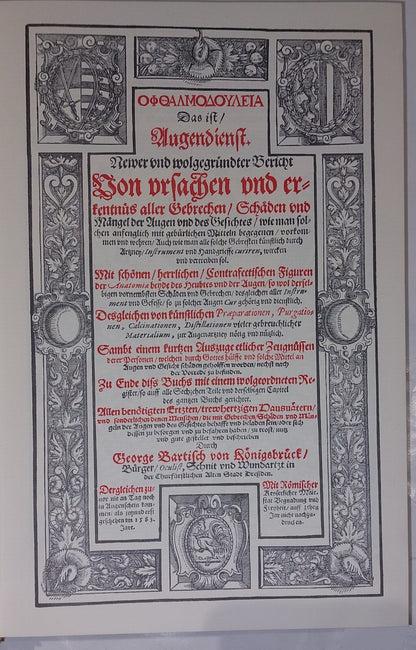 ΟΦΘΑΛΜΟΔΟΥΛΕΙΑ
Das ist /
Augendienst.
Newer vnd wolgegründter Bericht
Von vrsachen vnd er-
kentnüs aller Gebrechen / Schäden vnd
Mängel der Augen vnd des Gesichtes / wie man sol-
chen anfenglich mit gebürlichen Mitteln begegenen / vorkom-
men vnd wehren / Auch wie man alle solche Gebresten künstlich durch
Artzney / Instrument vnd Handgrieffe curiren, wircken
vnd vertreiben sol.
Mit schönen / herrlichen / Contrafectischen Figuren
der Anatomia beyde des Heubtes vnd der Augen / so wol dersel-
bigen vornembsten Schäden vnd Gebrechen / desgleichen aller Instru-
ment vnd Gefesse / so zu solcher Augen Cur gehörig vnd dienstlich.
Desgleichen von künstlichen Præparationen, Purgatio-
nen, Calcinationen, Distillationen vieler gebreuchlicher
Materialium, zur Augenartzney nötig vnd nützlich.
Sambt einem kurtzen Auszuge etlicher Zeugnüssen
derer Personen / welchen durch Gottes hülffe vnd solche Mittel an
Augen vnd Gesicht Schäden geholffen worden / nechst nach
der Vorrede zu befinden.
Zu Ende diss Buchs mit einem wolgeordneten Re-
gister / so auff alle Sechzehen Teile vnd derselbigen Capitel
des gantzen Buchs gerichtet.
Allen benötigten Ertzten / trewhertzigen Hausvätern /
vnd sonderlichen denen Menschen / die mit Gebrechen / Schäden vnd Män-
geln der Augen vnd des Gesichtes behafft vnd beladen sein / oder sich
dessen zu besorgen vnd zu befahren haben / zu trost / nutz
vnd gute gestellet vnd beschrieben
Durch
George Bartisch von Königsbrück /
Bürger / Oculist, Schnit vnd Wundartzt in
der Churfürstlichen Alten Stadt Dresden.
Dergleichen zu-
vor nie an Tag noch
in Augenschein kom-
men: als itzunderst
geschehen im 1583.
Jare.
Mit Römischer
Keyserlicher Maie-
stat Begnadung vnd
Freyheit / auff zehen
Jar nicht nachzu-
drucken.